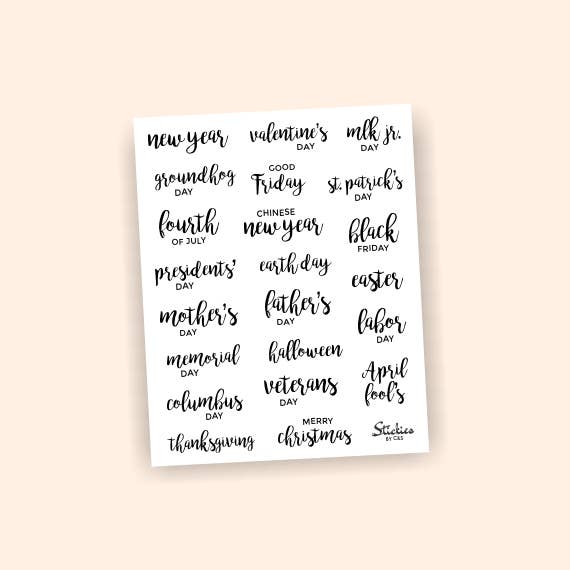 new year
valentine's
DAY
mlk jr.
DAY
groundhog
DAY
GOOD
Friday
st. patrick's
DAY
fourth
OF JULY
CHINESE
new year
black
FRIDAY
presidents'
DAY
earth day
easter
mother's
DAY
father's
DAY
labor
DAY
memorial
DAY
halloween
April
fool's
columbus
DAY
veterans
DAY
thanksgiving
MERRY
christmas
Stickies
BY C&S